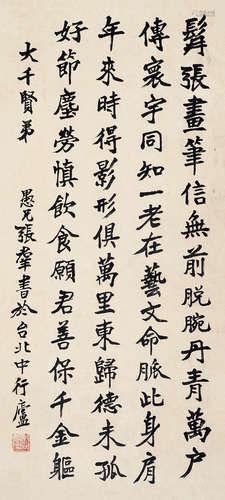 髯張畫筆信無前脫腕丹青萬戶
傳寰宇同知一老在藝文命脈此身肩
年來時得影形俱萬里東歸德未孤
好節塵勞慎飲食願君善保千金軀
大千賢弟
愚兄張羣書於台北中行廬